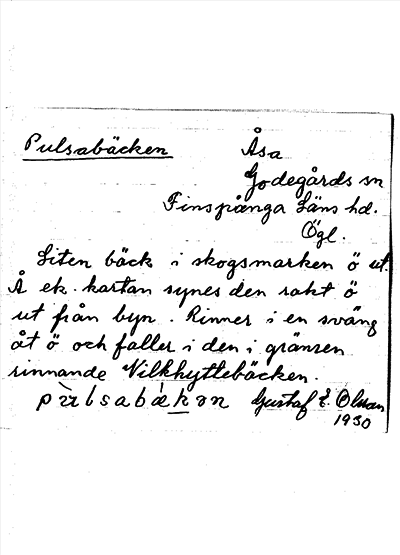 Pulsabäcken
Åsa
Godegårds sn
Finspånga Läns hd.
Ögl.
Liten bäck i skogsmarken ö ut.
Å ek. kartan synes den rakt ö
ut från byn. Rinner i en sväng
åt ö och faller i den i gränsen
rinnande Vilkhyttebäcken.
Gustaf E. Olsson
1930